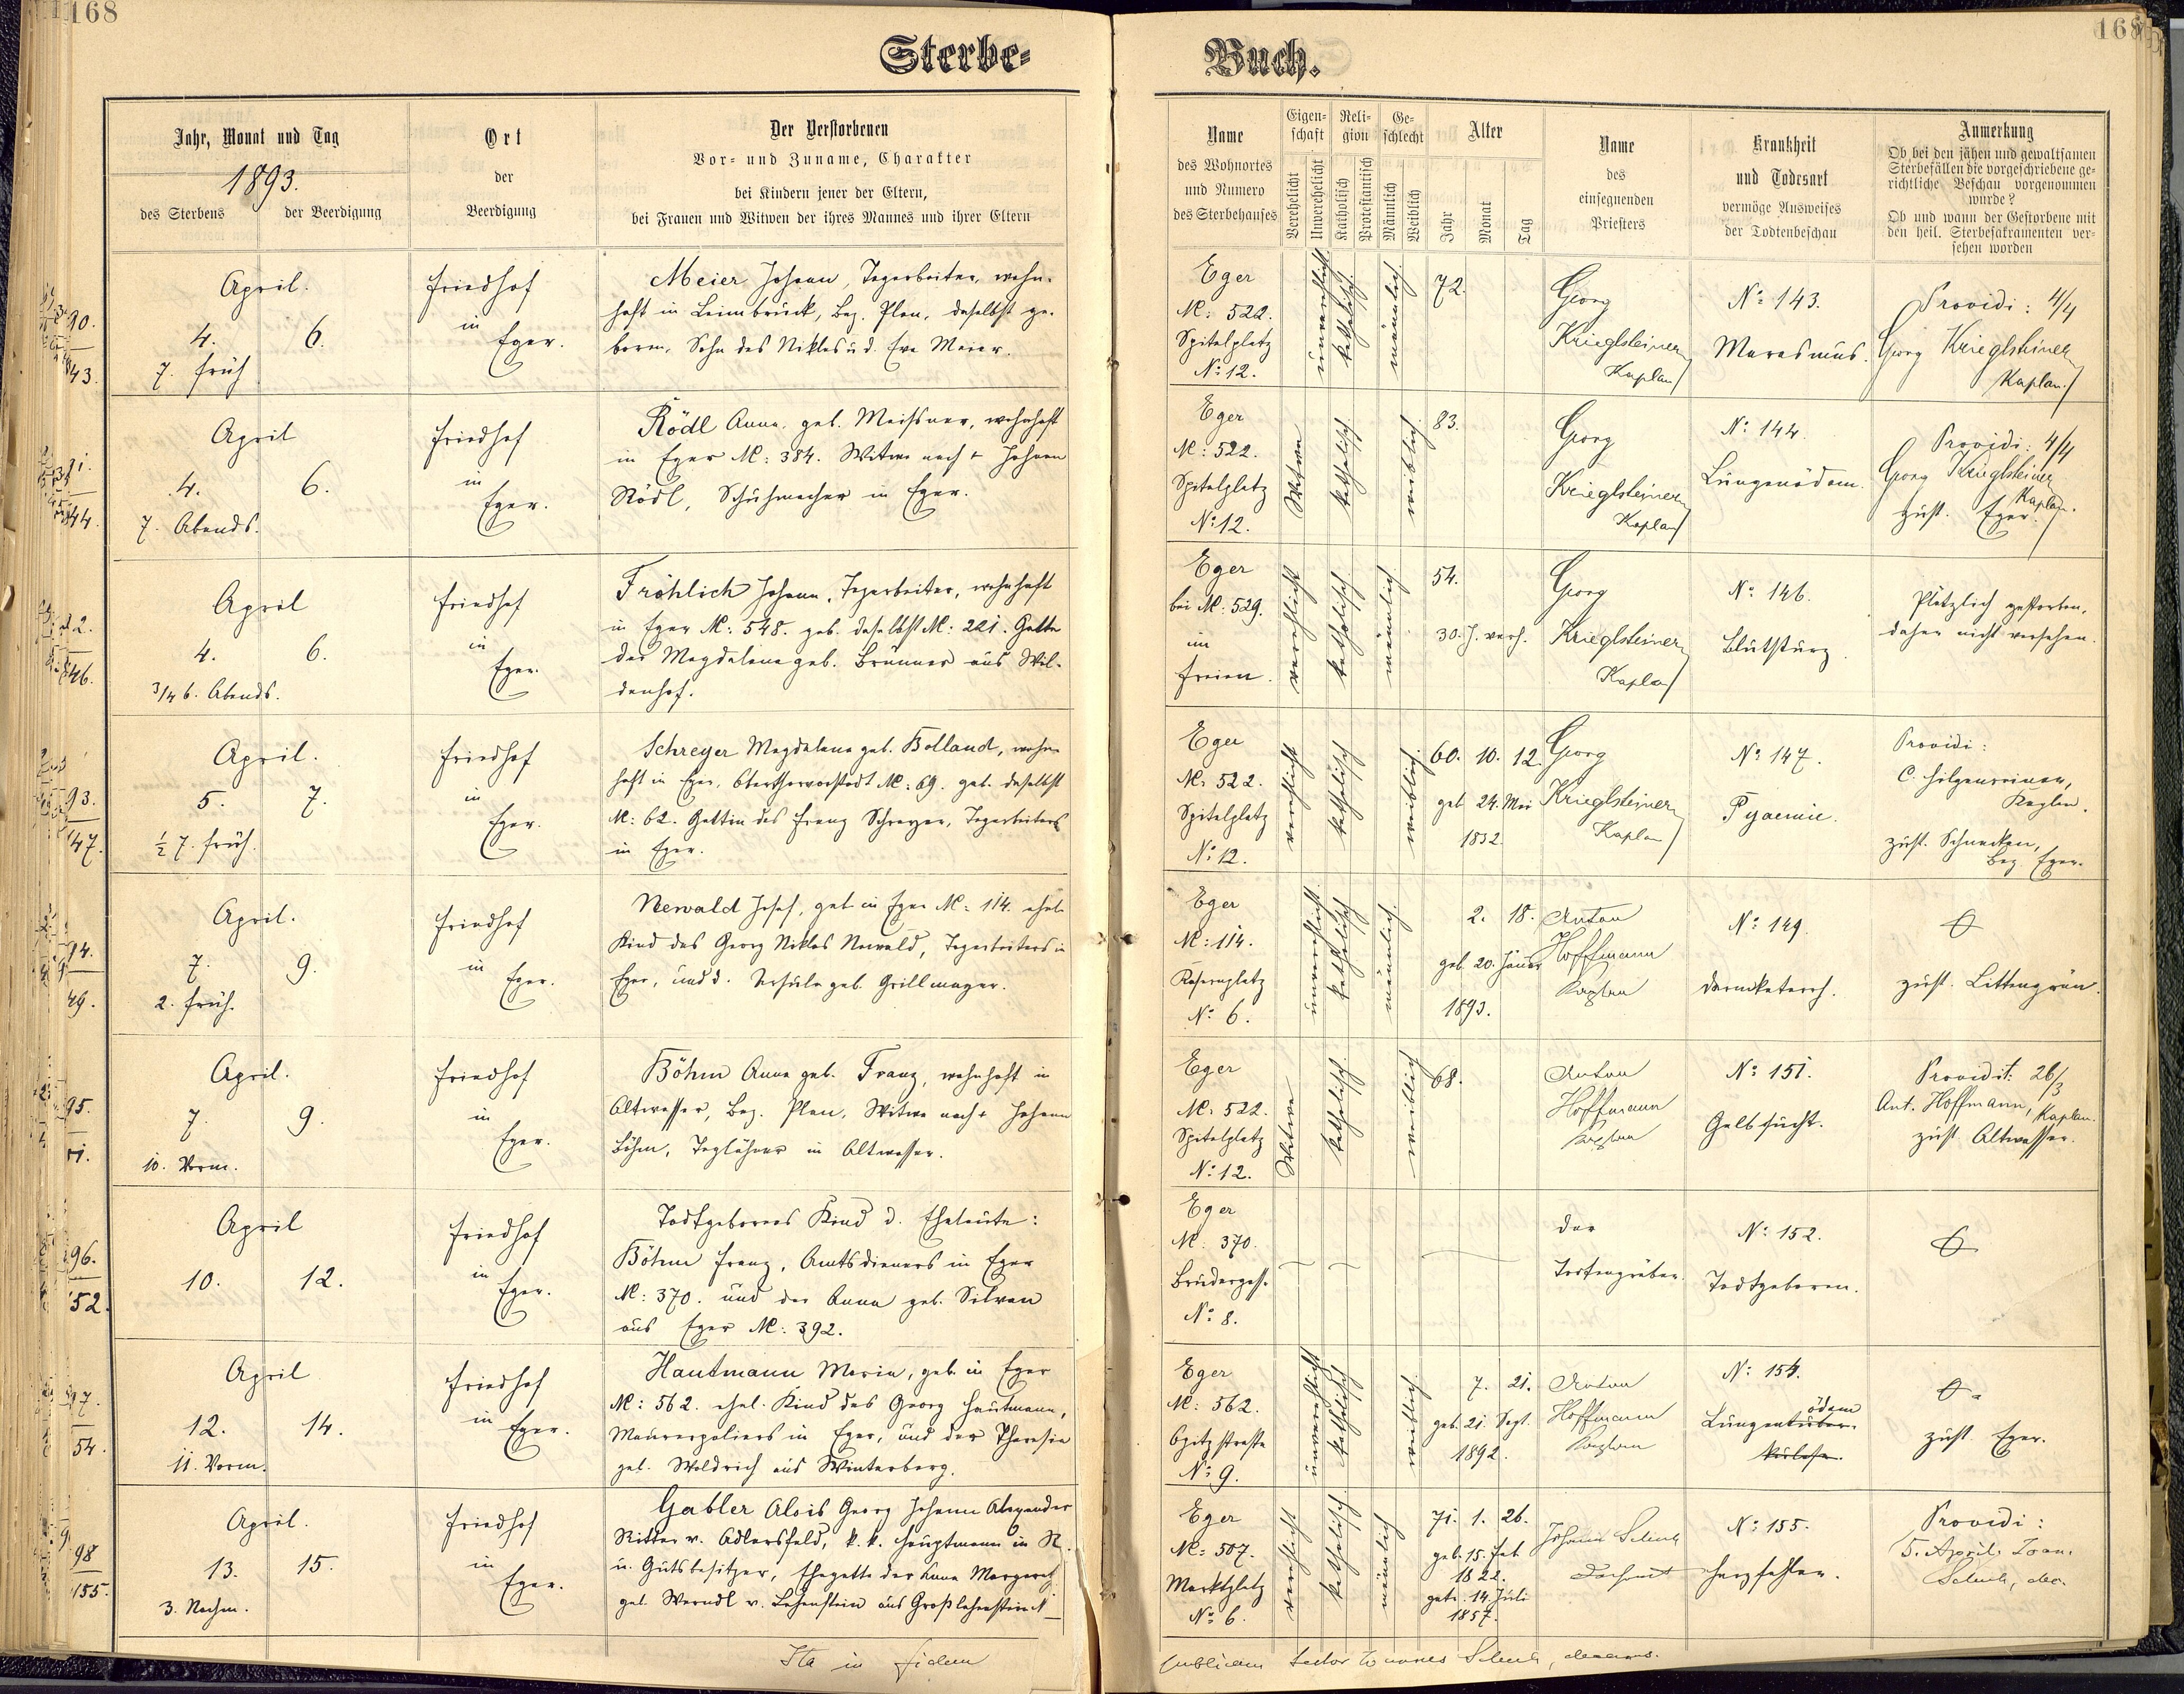 168
Sterbe-
Jahr, Monat und Tag
1893.
des Sterbens
der Beerdigung
Ort
der
Beerdigung
Der Verstorbenen
Vor- und Zuname, Charakter
bei Kindern jener der Eltern,
bei Frauen und Witwen der ihres Mannes und ihrer Eltern
90.
143.
April.
4. 6.
7. früh
Friedhof
in
Eger.
Meier Johann, Tagarbeiter, wohn-
haft in Leimbruck, Bez. Plan, daselbst ge-
boren, Sohn des Niklas u d. Eva Meier.
91.
144.
April
4. 6.
7. Abends.
Friedhof
in
Eger.
Rödl Anna, geb. Meissner, wohnhaft
in Eger N: 384. Witwe nach + Johann
Rödl, Schuhmacher in Eger.
92.
146.
April
4. 6.
3/4 6. Abends.
Friedhof
in
Eger.
Fröhlich Johann, Tagarbeiter, wohnhaft
in Eger N: 548. geb. daselbst N: 221. Gatte
der Magdalena geb. Brunner aus Wil-
denhof.
93.
147.
April.
5. 7.
½ 7. früh.
Friedhof
in
Eger.
Schreyer Magdalena geb. Bolland, wohn-
haft in Eger, Oberthorvorstadt N: 69. geb. daselbst
N: 62. Gattin des Franz Schreyer, Tagarbeiters
in Eger.
94.
149.
April.
7. 9.
2. früh.
Friedhof
in
Eger.
Newald Josef, geb in Eger N: 114. ehel.
Kind des Georg Niklas Newald, Tagarbeiters in
Eger, und d. Ursula geb. Grillmayer.
95.
April.
7. 9.
10. Vorm.
Friedhof
in
Eger.
Böhm Anna geb. Franz, wohnhaft in
Altwasser, Bez. Plan, Witwe nach + Johann
Böhm, Taglöhner in Altwasser.
96.
152.
April
10. 12.
Friedhof
in
Eger.
Todtgeborenes Kind d. Eheleute:
Böhm Franz, Amtsdieners in Eger
N: 370. und der Anna geb. Silvan
aus Eger N: 392.
97.
54.
April
12. 14.
11. Vorm.
Friedhof
in Eger.
Hautmann Maria, geb. in Eger
N: 562. ehel. Kind des Georg Hautmann,
Maurerpoliers in Eger, und der Theresia
geb. Woldrich aus Winterberg.
98
155.
April.
13. 15.
3. Nachm.
Friedhof
in
Eger.
Gabler Alois Georg Johann Alexander
Ritter v. Adlersfeld, k. k. Hauptmann in R.
u. Gutsbesitzer, Ehegatte der Anna Margareth
geb. Werndl v. Lehenstein aus Großlehenstein
Ita in fidem
168
Buch.
Name
des Wohnortes
und Numero
des Sterbehauses
Eigen-
schaft
Verehelicht
Unverehelicht
Reli-
gion
Katholisch
Protestantisch
Ge-
schlecht
Männlich
Weiblich
Alter
Jahr
Monat
Tag
Name
des
einsegnenden
Priesters
Krankheit
und Todesart
vermöge Ausweises
der Todtenbeschau
Anmerkung
Ob bei den jähen und gewaltsamen
Sterbefällen die vorgeschriebene ge-
richtliche Beschau vorgenommen
wurde?
Ob und wann der Gestorbene mit
den heil. Sterbesakramenten ver-
sehen worden
Eger
N: 522.
Spitalplatz
No: 12.
unverehelicht
katholisch
männlich
72.
Georg
Krieglsteiner
Kaplan
No: 143.
Marasmus.
Providi: 4/4
Georg Krieglsteiner
Kaplan.
Eger
N: 522.
Spitalplatz
No: 12.
Witwe
katholisch
weiblich
83.
Georg
Krieglsteiner
Kaplan
No: 144.
Lungenödem.
Providi: 4/4
Georg Krieglsteiner
Kaplan.
zust. Eger.
Eger
bei N: 529.
im
Freien.
verehelicht
katholisch
männlich
54.
30. J. verh.
Georg
Krieglsteiner
Kaplan
No: 146.
Blutsturz.
Plötzlich gestorben,
daher nicht versehen.
Eger
N: 522.
Spitalplatz
No: 12.
verehelicht
katholisch
weiblich
60. 10. 12.
geb 24. Mai
1832.
Georg
Krieglsteiner
Kaplan
No: 147.
Pyaemie.
Providi:
C. Hilgenreiner,
Kaplan.
zust. Schnecken,
Bez. Eger.
Eger
N: 114.
Kasernplatz
No: 6.
unverehelicht
katholisch
männlich
2. 18.
geb. 20. Jäner
1893.
Anton
Hoffmann
Kaplan
No: 149.
Darmkatarrh.
zust. Littengrün.
Eger
N: 522.
Spitalplatz
No: 12.
Witwe
katholisch
weiblich
68.
Anton
Hoffmann
Kaplan
No: 151.
Gelbsucht.
Providit: 26/3
Ant. Hoffmann, Kaplan.
zust. Altwasser.
Eger
N: 370.
Brudergasse
No: 8.
der
Todtengräber.
No: 152.
Todtgeboren.
Eger
N: 562.
Opitzstrasse
No: 9.
unverehelicht
katholisch
weiblich
7. 21.
geb. 21. Sept.
1892.
Anton
Hoffmann
Kaplan
No: 154.
ödem
Lungentuber-
kulose.
zust. Eger.
Eger
N: 507.
Marktplatz
No: 6.
verehelicht
katholisch
männlich
71. 1. 26.
geb. 15. Feb.
1822.
getr. 14. Juli
1857.
Johann Schuh
Dechant
No: 155.
Herzfehler.
Providi:
5. April. Joan.
Schuh, dec.
publicam testor Joannes Schuh, decanus.